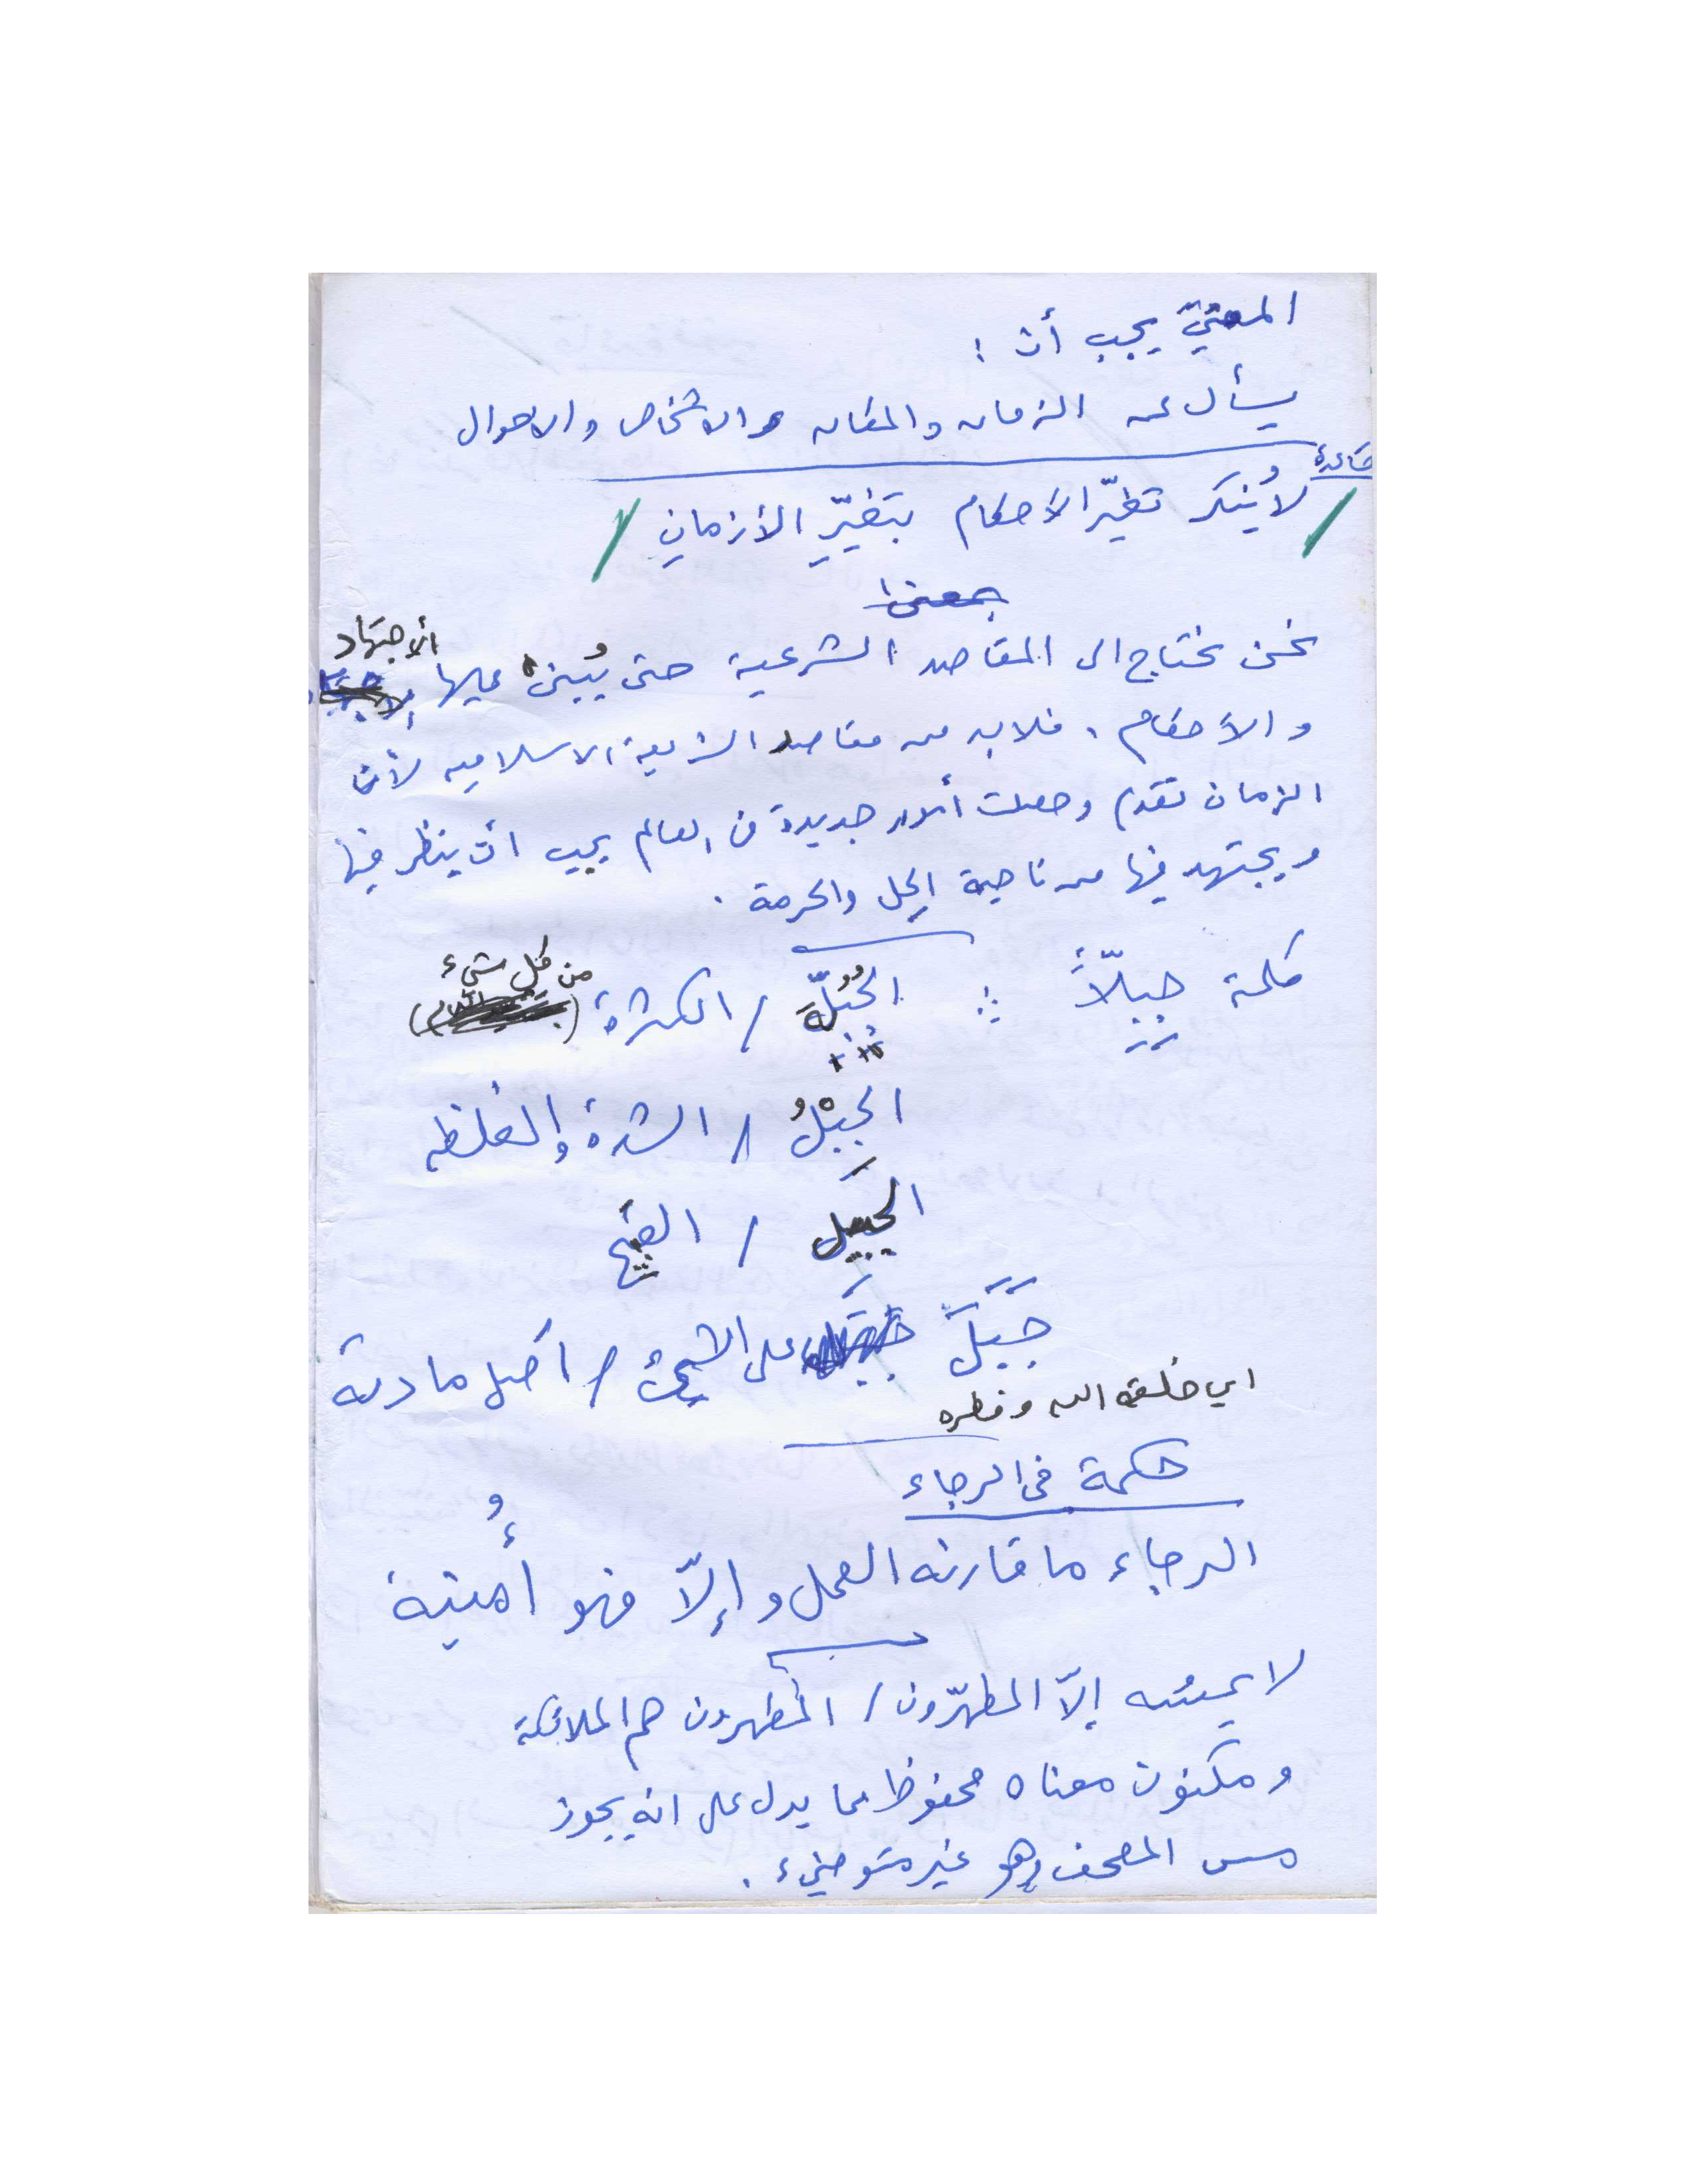 المفتيّ يجب أن :
يسأل عن الزمان والمكان والاشخاص والاحوال
قاعدة
لا يُنكر تغيّر الأحكام بتغيّرِ الأزمانِ
بمعنى
نحن نحتاج الى المقاصد الشرعية حتى يُبنى عليها الاجتهاد
والأحكام . فلابد من مقاصد الشريعة الاسلاميه لأن
الزمان تقدم وحصلت أمور جديدة في العالم يجب ان ينظر فيها
ويجتهد فيها من ناحية الحل والحرمة .
كلمة جِبِلّاً : الجُبُلَّة / الكثرة من كل شيء
الجِبْلُ / الشدة والغلظه
الجبيل / القبيح
جَبَلَ على الشيء / اصل مادته
اي خلقه الله وفطره
حكمة في الرجاء
الرجاء ما قارنه العمل وإلّا فهو أُمنية
لا يمسُّه إلّا المطهّرون / المطهرون هم الملائكة
ومكنون معناه محفوظ مما يدل على انه يجوز
مس المصحف وهو غير متوضيء .